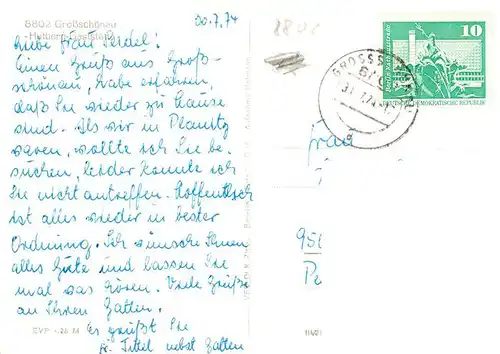 8802 Großschönau
Hutberg-Gaststätte
30.7.74
Liebe Frau Seidel!
Einen Gruß aus Groß-
schönau, habe erfahren,
daß Sie wieder zu Hause
sind. Als wir in Planitz
waren, wollte ich Sie be-
suchen, leider konnte ich
Sie nicht antreffen. Hoffentlich
ist alles wieder in bester
Ordnung. Ich wünsche Ihnen
alles Gute und lassen Sie
mal was hören. Viele Grüße
an Ihren Gatten.
Es grüßt Sie
Tittel nebst Gatten
EVP M
10
DEUTSCHE DEMOKRATISCHE REPUBLIK
Frau
951
Pe